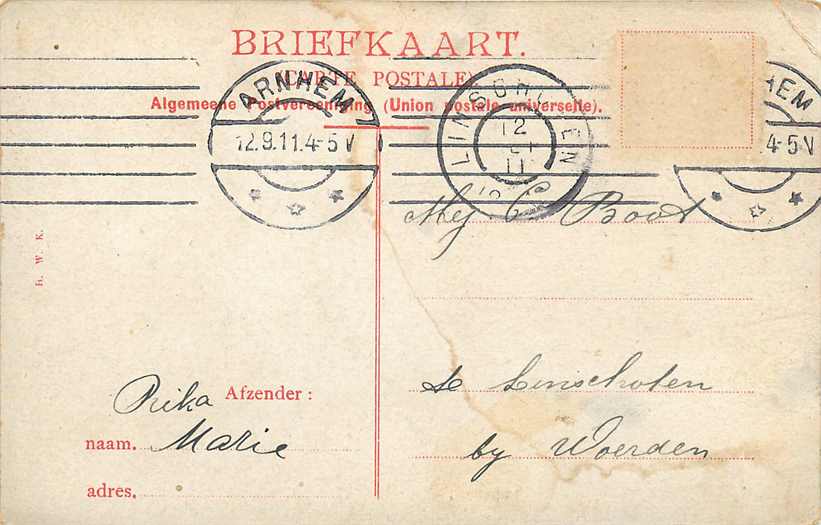 BRIEFKAART.
(CARTE POSTALE)
Algemeene Postvereeniging (Union postale universelle).
ARNHEM
12.9.11.4-5V
LINSCHOTEN
12
11
HEM
4-5V
Mej C. Boot
H. W. K.
te Linschoten
by Woerden
Rika
Afzender:
naam. Marie
adres.